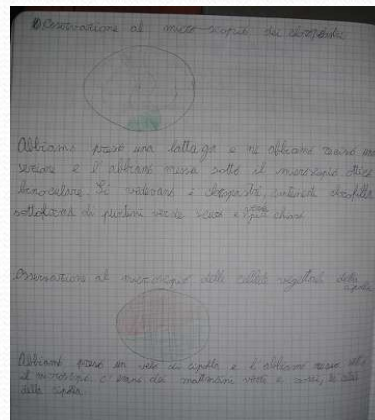 Osservazione al microscopio dei cloroplasti
Abbiamo preso una lattuga e ne abbiamo
sezione e l'abbiamo messa sotto il microscopio ottico
binoculare. Si vedevano i cloroplasti, clorofilla
sottoforma di puntini verde scuro e verde chiaro
Osservazione al microscopio delle cellule vegetali della
cipolla
Abbiamo preso un velo di cipolla e l'abbiamo messo sotto
il microscopio, ci sono dei mattoncini verdi e rossi, le
della cipolla.